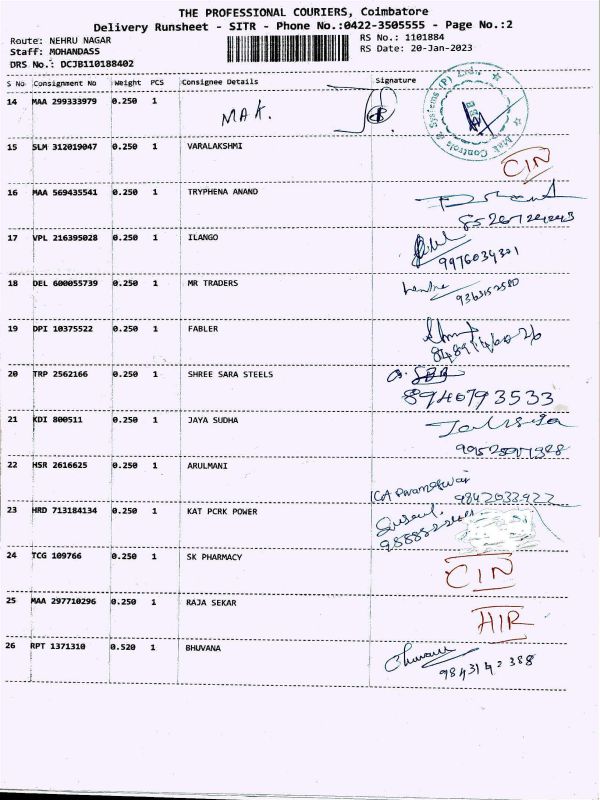 THE PROFESSIONAL COURIERS, Coimbatore
Delivery Runsheet - SITR - Phone No.:0422-3505555 - Page No.:2
Route: NEHRU NAGAR RS No.: 1101884
Staff: MOHANDASS RS Date: 20-Jan-2023
DRS No.: DCJB110188402
S No Consignment No Weight PCS Consignee Details Signature
14 MAA 299333979 0.250 1 MAK.
Mak Controls & Systems (P) Ltd.,
15 SLM 312019047 0.250 1 VARALAKSHMI CIN
16 MAA 569435541 0.250 1 TRYPHENA ANAND
17 VPL 216395028 0.250 1 ILANGO
9976034301
18 DEL 600055739 0.250 1 MR TRADERS
9363152580
19 DPI 10375522 0.250 1 FABLER
20 TRP 2562166 0.250 1 SHREE SARA STEELS
8940793533
21 KDI 800511 0.250 1 JAYA SUDHA
22 HSR 2616625 0.250 1 ARULMANI
9842033922
23 HRD 713184134 0.250 1 KAT PCRK POWER
24 TCG 109766 0.250 1 SK PHARMACY CIN
25 MAA 297710296 0.250 1 RAJA SEKAR HIR
26 RPT 1371310 0.520 1 BHUVANA
9843142388